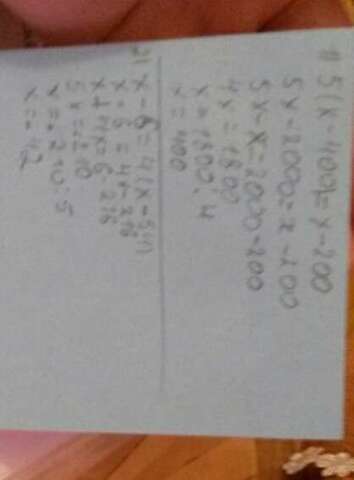 1) 5(x-400)=x-200
5x-2000=x-200
5x-x=2000-200
4x=1800
x=1800:4
x=400
2) x-6=4(x-54)
x-6=4x-216
x+4x=6-216
5x=-210
x=-210:5
x=-42